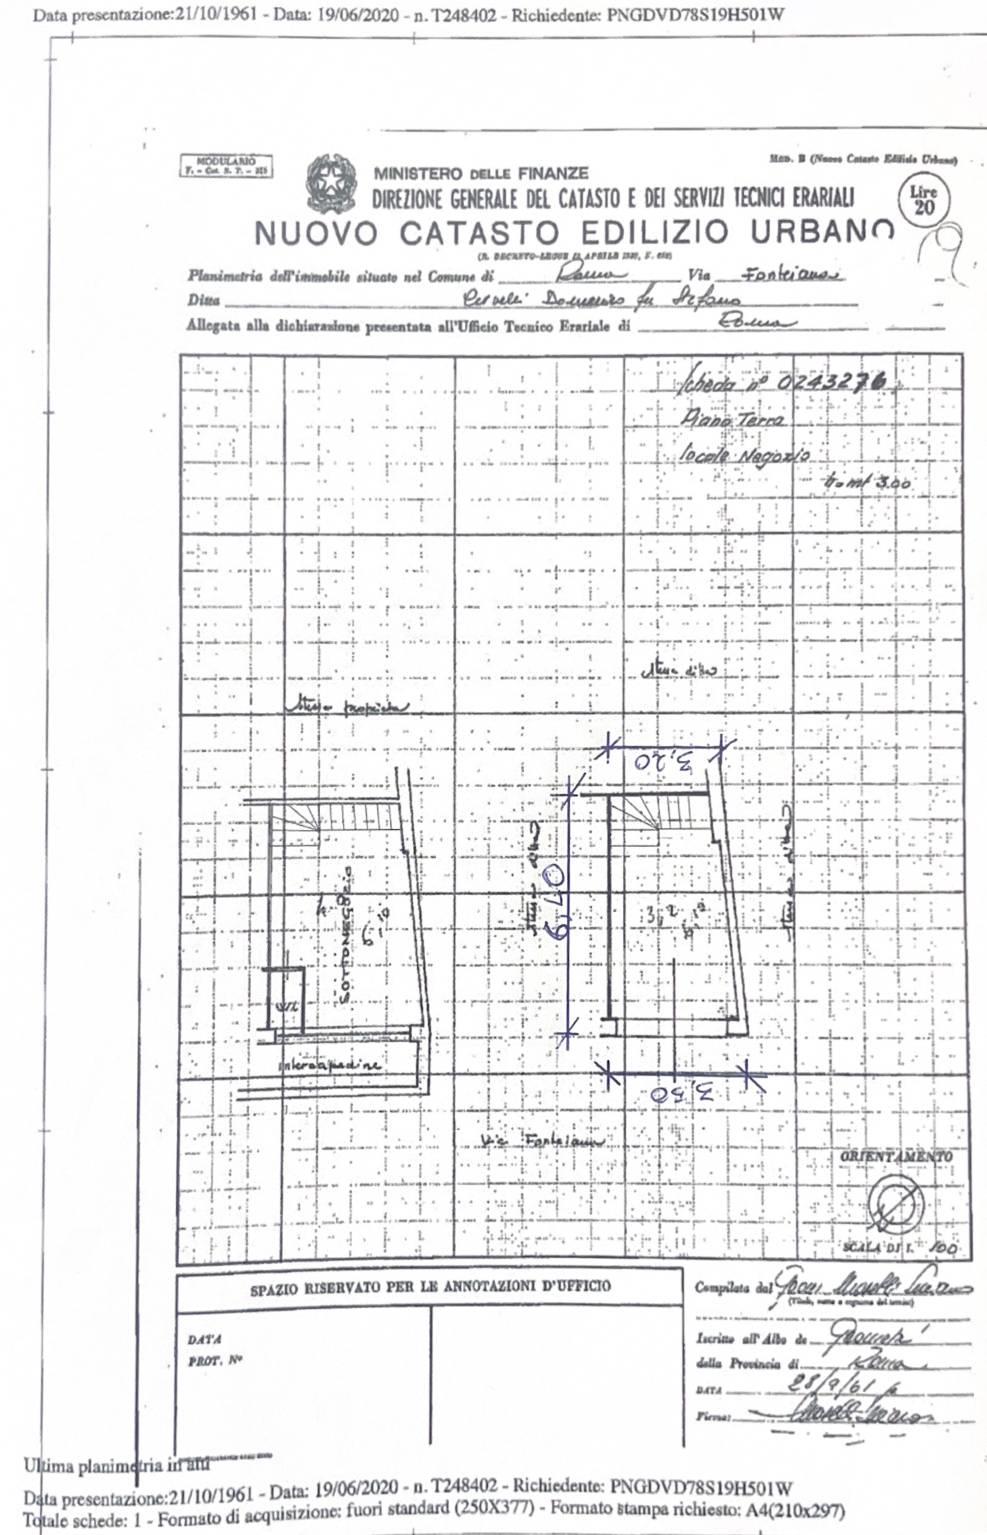 Data presentazione:21/10/1961 - Data: 19/06/2020 - n. T248402 - Richiedente: PNGDVD78S19H501W
MODULARIO
F. - Cat. S. T. - 315
Mod. B (Nuovo Catasto Edilizio Urbano)
MINISTERO DELLE FINANZE
DIREZIONE GENERALE DEL CATASTO E DEI SERVIZI TECNICI ERARIALI
Lire
20
NUOVO CATASTO EDILIZIO URBANO
(R. DECRETO-LEGGE 13 APRILE 1939, N. 652)
9
Planimetria dell'immobile situato nel Comune di Roma Via Fonteiana
Ditta Domenico fu Stefano
Allegata alla dichiarazione presentata all'Ufficio Tecnico Erariale di Roma
Scheda n° 0243276
Piano Terra
locale Negozio
h= mt 3.00
stessa ditta
stessa proprietà
3,20
stessa ditta
6,40
stessa ditta
SOTTONEGOZIO
W.C.
intercapedine
3,50
Via Fonteiana
ORIENTAMENTO
SCALA DI 1: 100
SPAZIO RISERVATO PER LE ANNOTAZIONI D'UFFICIO
DATA
PROT. N°
Compilata dal Geom.
(Titolo, nome e cognome del tecnico)
Iscritto all'Albo de Geometri
della Provincia di Roma
DATA 28/9/61
Firma:
Ultima planimetria in atti
Data presentazione:21/10/1961 - Data: 19/06/2020 - n. T248402 - Richiedente: PNGDVD78S19H501W
Totale schede: 1 - Formato di acquisizione: fuori standard (250X377) - Formato stampa richiesto: A4(210x297)